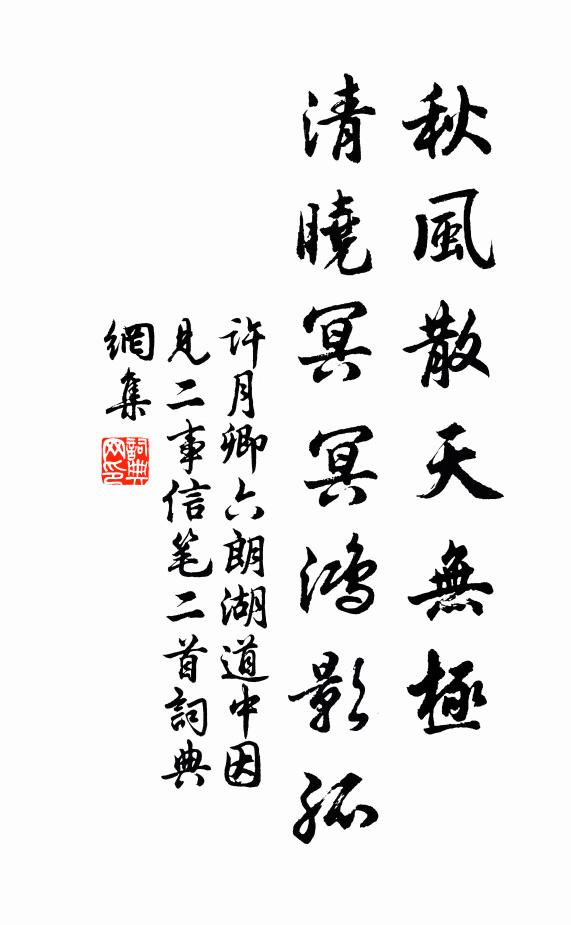 秋風散天無極
清曉冥冥鴻影孤
許月卿六朗湖道中因
見二事信笔二首詞典
網集
詞典網印